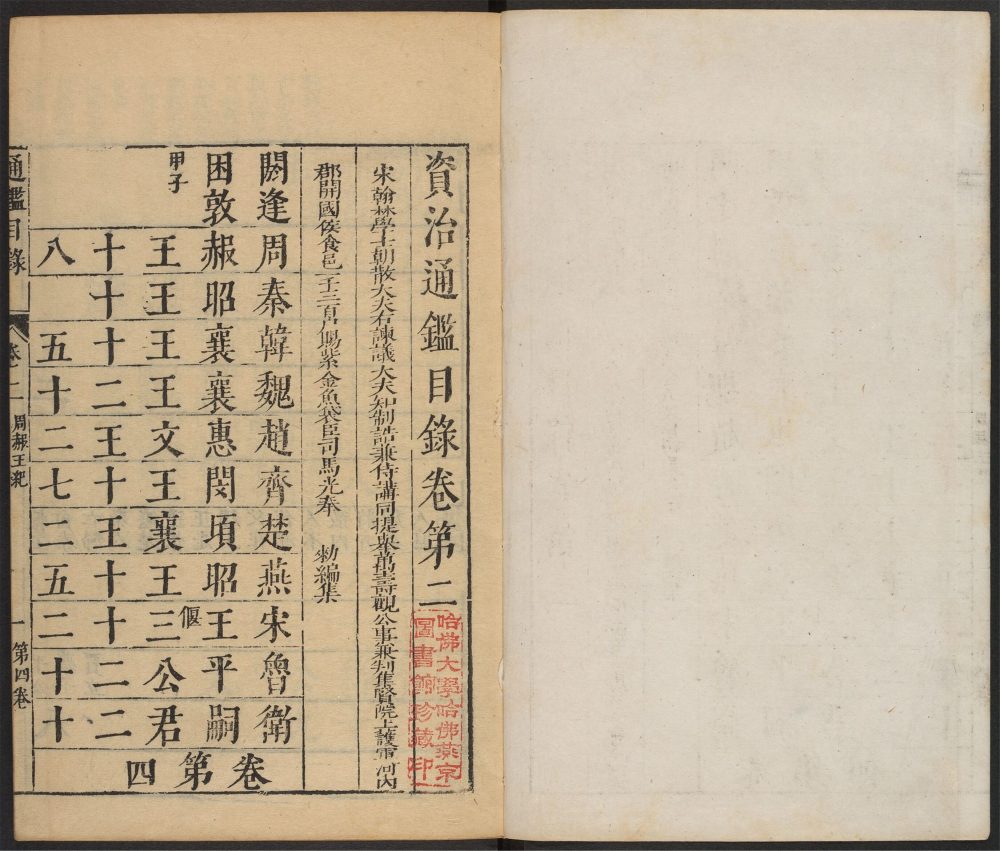 資治通鑑目錄卷第二
哈佛大學哈佛燕京
圖書館珍藏印
宋翰林學士朝散大夫右諫議大夫知制誥兼侍講同提舉萬壽觀公事兼判集賢院上護軍河內
郡開國侯食邑一千三百戶賜紫金魚袋臣司馬光奉 勑編集
閼逢周秦韓魏趙齊楚燕宋魯衛
困敦赧昭襄襄惠閔頃昭王偃平嗣
甲子王王王王文王襄王三公君
十十十二王十王十十二二
八五十二七二五二十十
卷第四
通鑑目錄 卷二 周赧王紀 一 第四卷